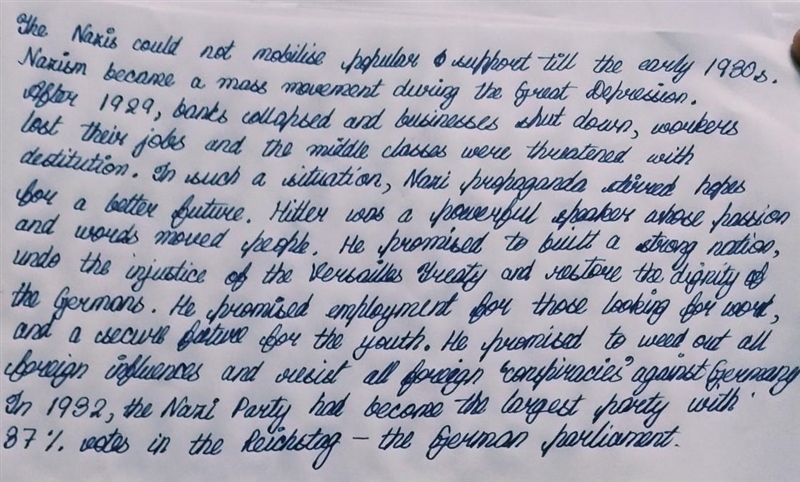 The Nazis could not mobilise popular support till the early 1930s.
Nazism became a mass movement during the Great Depression.
After 1929, banks collapsed and businesses shut down, workers
lost their jobs and the middle classes were threatened with
destitution. In such a situation, Nazi propaganda stirred hopes
for a better future. Hitler was a powerful speaker whose passion
and words moved people. He promised to built a strong nation,
undo the injustice of the Versailles Treaty and restore the dignity of
the Germans. He promised employment for those looking for work,
and a secure future for the youth. He promised to weed out all
foreign influences and resist all foreign 'conspiracies' against Germany
In 1932, the Nazi Party had become the largest party with
37 % votes in the Reichstag – the German parliament.